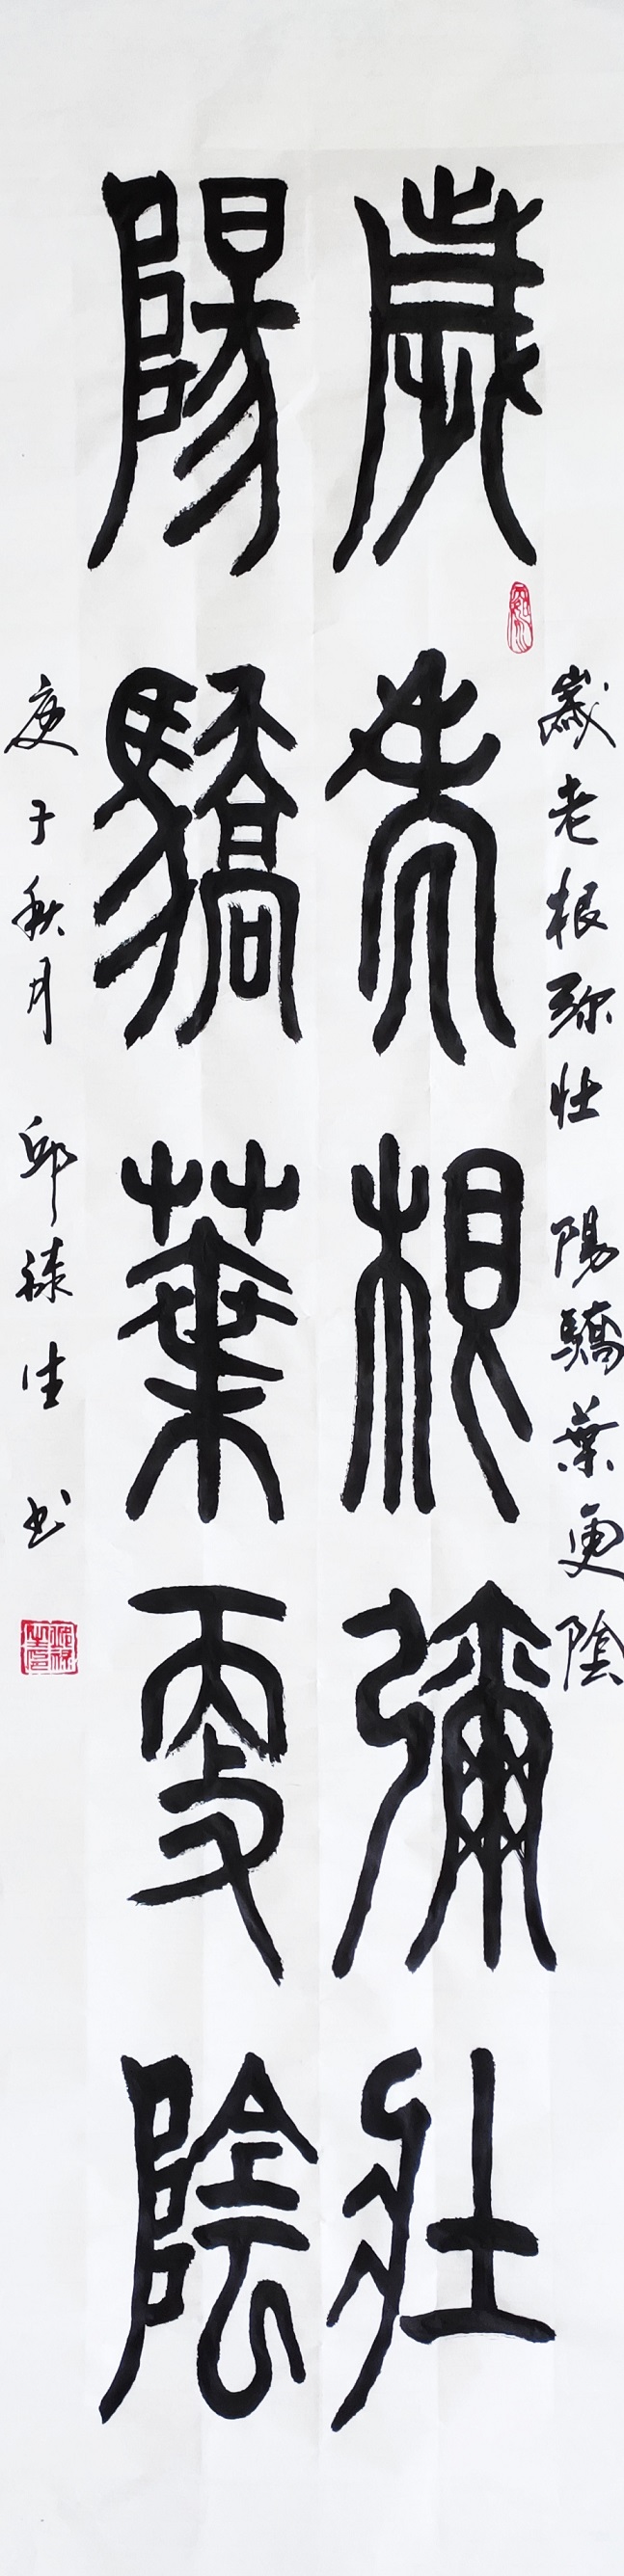 歲老根彌壯
陽驕葉更陰
歲老根弥壮 陽驕葉更陰
庚子秋月 邱祿生 书